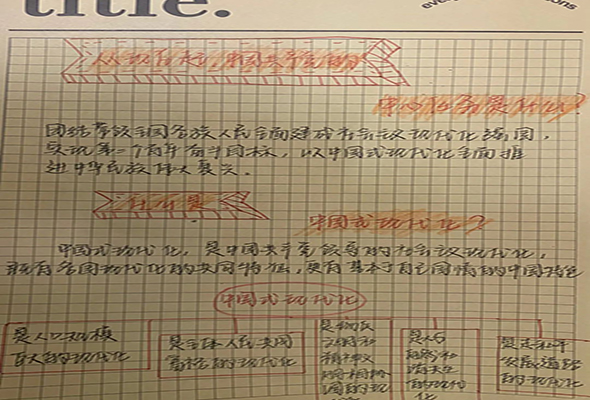 title.
从现在起,中国共产党的
中心任务是什么?
团结带领全国各族人民全面建成社会主义现代化强国,
实现第二个百年奋斗目标,以中国式现代化全面推
进中华民族伟大复兴.
什么是
中国式现代化?
中国式现代化,是中国共产党领导的社会主义现代化,
既有各国现代化的共同特征,更有基于自己国情的中国特色
中国式现代化
是人口规模
巨大的现代化
是全体人民共同
富裕的现代化
是物质
文明和
精神文
明相协
调的现
是人与
自然和
谐共生
的现代
化
是走和平
发展道路
的现代化